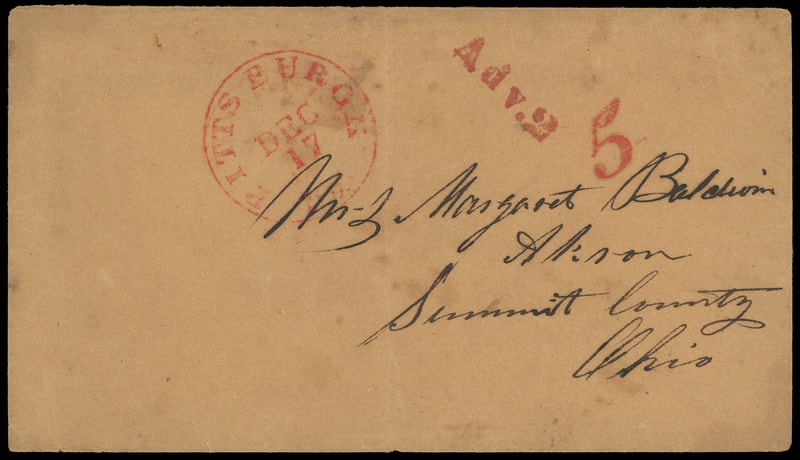 PITTSBURGH
DEC
17
PA
Adv. 2
5
Mrs Margaret Baldwin
Akron
Summit County
Ohio